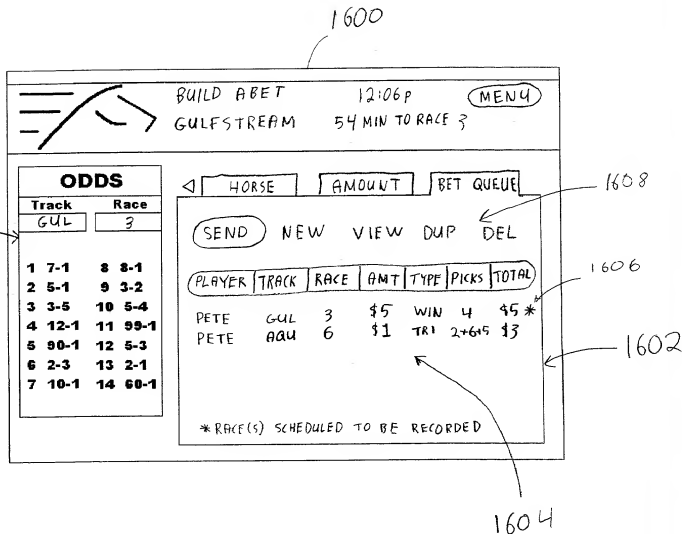 1600
BUILD A BET 12:06P MENU
GULFSTREAM 54 MIN TO RACE 3
ODDS
Track Race
GUL 3
1 7-1 8 8-1
2 5-1 9 3-2
3 3-5 10 5-4
4 12-1 11 99-1
5 90-1 12 5-3
6 2-3 13 2-1
7 10-1 14 60-1
HORSE AMOUNT BET QUEUE
1608
SEND NEW VIEW DUP DEL
PLAYER TRACK RACE AMT TYPE PICKS TOTAL
1606
PETE GUL 3 $5 WIN 4 $5 *
PETE AQU 6 $1 TRI 2+6+5 $3
1602
* RACE(S) SCHEDULED TO BE RECORDED
1604